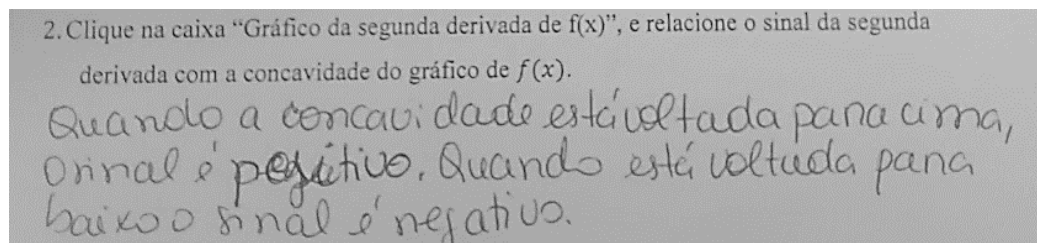 2. Clique na caixa “Gráfico da segunda derivada de f(x)”, e relacione o sinal da segunda
derivada com a concavidade do gráfico de f(x).
Quando a concavidade está voltada para cima,
o sinal é positivo. Quando está voltada para
baixo o sinal é negativo.